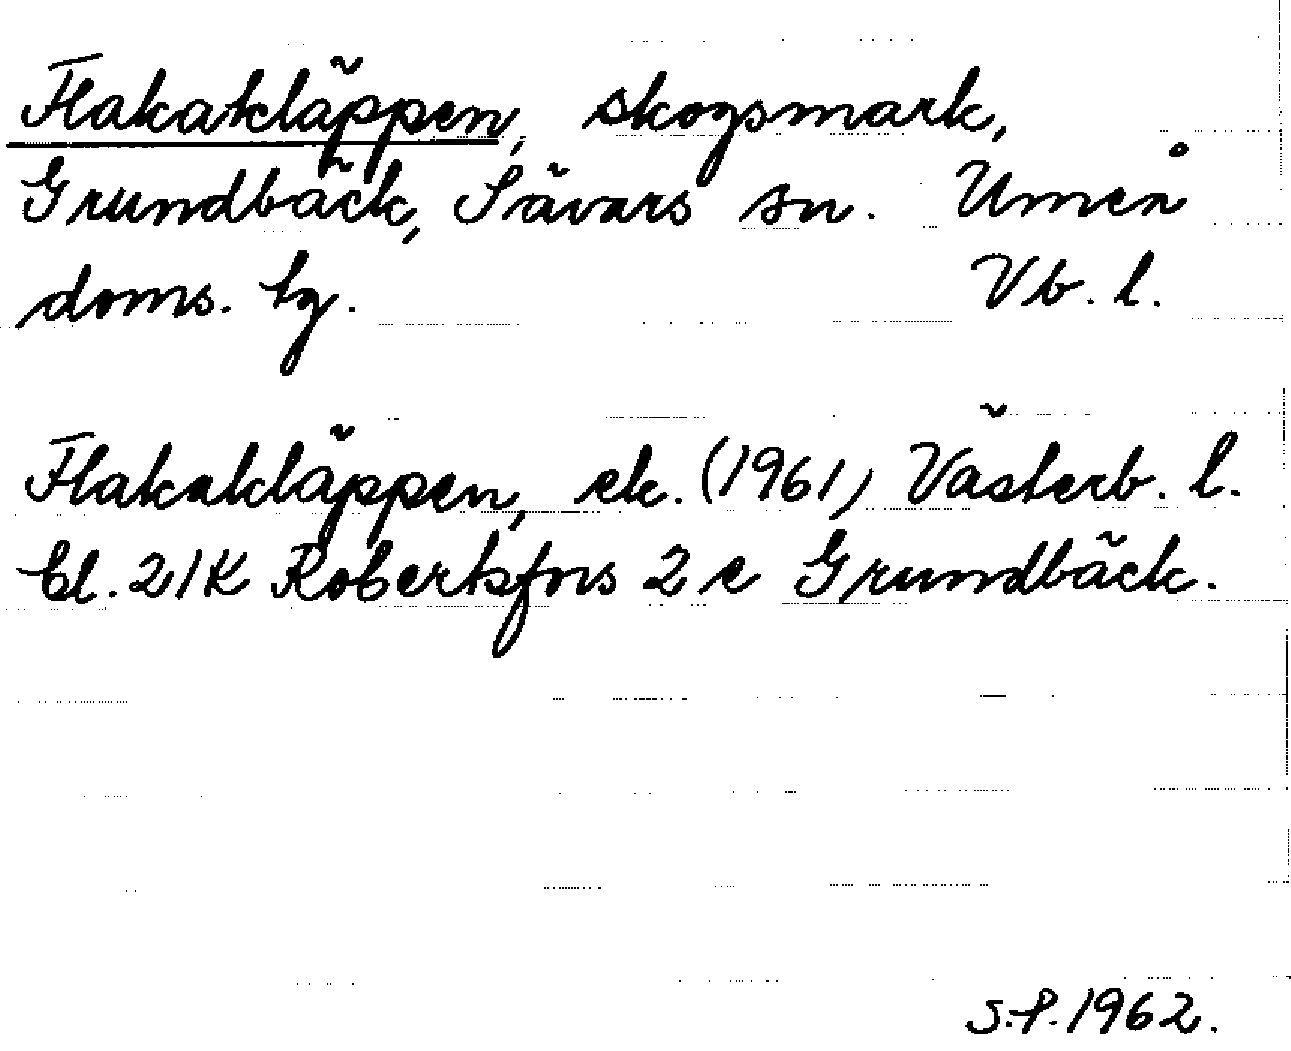 Flakakläppen, skogsmark,
Grundbäck, Sävars sn. Umeå
doms. hg. Vb. l.
Flakakläppen, ek. (1961) Västerb. l.
bl. 21K Robertsfors 2 e Grundbäck.
S.P. 1962.